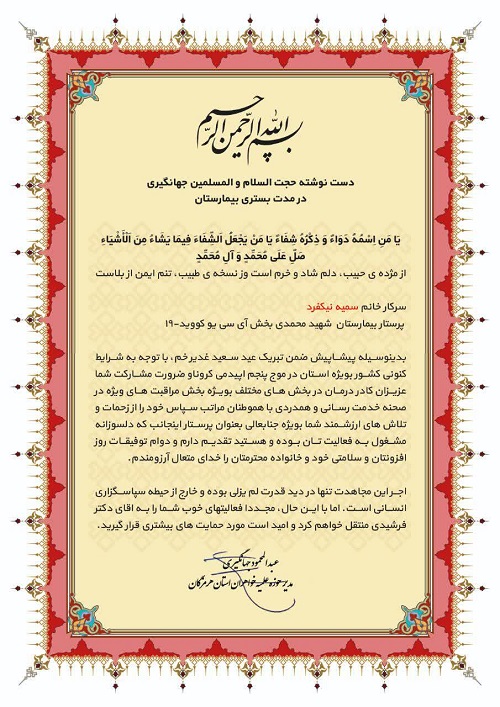 بسم الله الرحمن الرحیم
دست نوشته حجت السلام و المسلمین جهانگیری
در مدت بستری بیمارستان
یَا مَنِ اِسْمُهُ دَوَاءٌ وَ ذِکْرُهُ شِفَاءٌ یَا مَنْ یَجْعَلُ اَلشِّفَاءَ فِیمَا یَشَاءُ مِنَ اَلْأَشْیَاءِ
صَلِّ عَلَی مُحَمَّدٍ وَ آلِ مُحَمَّدٍ
از مژده ی حبیب، دلم شاد و خرم است وز نسخه ی طبیب، تنم ایمن از بلاست
سرکار خانم سمیه نیکفرد
پرستار بیمارستان شهید محمدی بخش آی سی یو کووید-۱۹
بدینوسیله پیشاپیش ضمن تبریک عید سعید غدیرخم، با توجه به شرایط
کنونی کشور بویژه استان در موج پنجم اپیدمی کرونا و ضرورت مشارکت شما
عزیزان کادر درمان در بخش های مختلف بویژه بخش مراقبت های ویژه در
صحنه خدمت رسانی و همدردی با هموطنان مراتب سپاس خود را از زحمات و
تلاش های ارزشمند شما بویژه جنابعالی بعنوان پرستار اینجانب که دلسوزانه
مشغول به فعالیت تان بوده و هستید تقدیم دارم و دوام توفیقات روز
افزونتان و سلامتی خود و خانواده محترمتان را خدای متعال آرزومندم.
اجر این مجاهدت تنها در دید قدرت لم یزلی بوده و خارج از حیطه سپاسگزاری
انسانی است. اما با این حال، مجددا فعالیتهای خوب شما را به اقای دکتر
فرشیدی منتقل خواهم کرد و امید است مورد حمایت های بیشتری قرار گیرید.
عبدالمحمود جهانگیری
مدیر حوزه علمیه خواهران استان هرمزگان